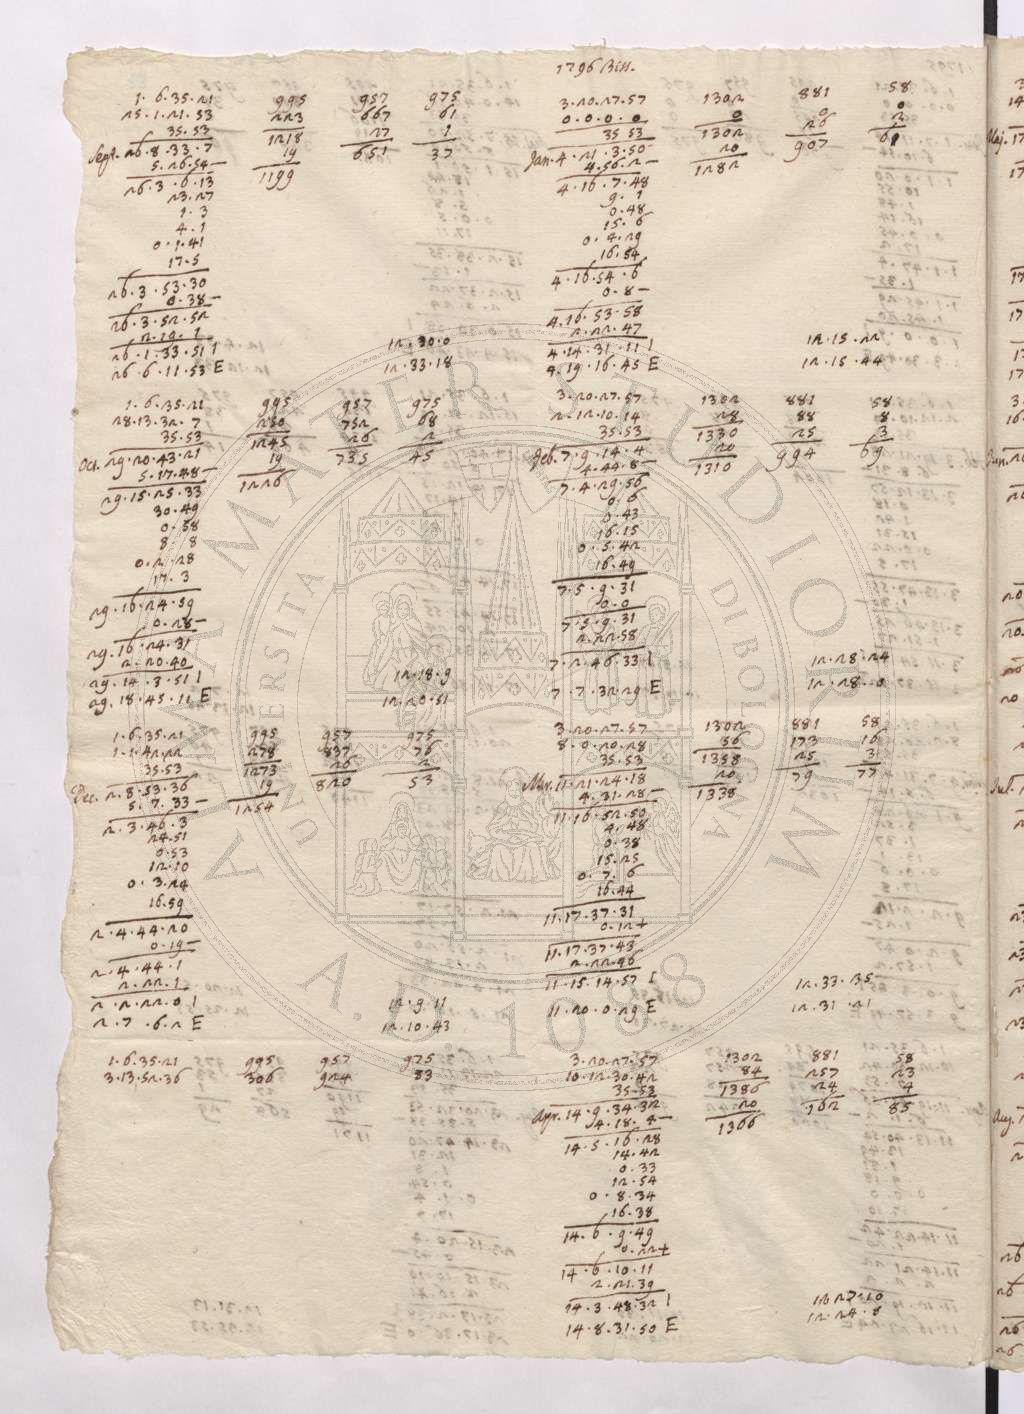 1796 Biss.
1.6.35.21 995 957 975
25.1.21.53 223 667 61
35.53 1218 27 1
Sept. 26.8.33.7 19 651 37
5.26.54- 1199
26.3.6.13
23.27
1.3
4.1
0.1.41
17.5
26.3.53.30
0.38-
26.3.52.52
2.19.1
26.1.33.51 I 12.30.0
26.6.11.53 E 12.33.18
1.6.35.21 995 957 975
28.13.32.7 250 752 68
35.53 1245 26 2
Oct. 29.20.43.21 19 735 45
5.17.48- 1226
29.15.25.33
30.49
0.58
8.8
0.2.28
17.3
29.16.24.59
0.28-
29.16.24.31
2.20.40
29.14.3.51 I 12.18.9
29.18.45.11 E 12.20.51
1.6.35.21 995 957 975
1.1.42.22 278 837 76
35.53 1273 26 2
Dec. 2.8.53.36 19 820 53
5.7.33- 1254
2.3.46.3
24.51
0.53
12.10
0.3.24
16.59
2.4.44.20
0.19-
2.4.44.1
2.22.1
2.2.22.0 I 12.9.11
2.7.6.2 E 12.10.43
1.6.35.21 995 957 975
3.13.52.36 306 924 83
3.20.27.57 1302 881 58
0.0.0.0 0 0 0
35.53 1302 26 2
Jan. 4.21.3.50 20 907 61
4.56.2- 1282
4.16.7.48
9.1
0.48
15.6
0.4.29
16.54
4.16.54.6
0.8-
4.16.53.58
2.22.47
4.14.31.11 I 12.15.22
4.19.16.45 E 12.15.44
3.20.27.57 1302 881 58
2.12.10.14 28 88 8
35.53 1330 25 3
Feb. 7.9.14.4 20 994 69
4.44.8- 1310
7.4.29.56
0.6
0.43
16.15
0.5.42
16.49
7.5.9.31
0.0
7.5.9.31
2.22.58
7.2.46.33 I 12.28.24
7.7.32.29 E 12.28.0
3.20.27.57 1302 881 58
8.9.20.28 56 173 16
35.53 1358 25 3
Mar. 11.21.24.18 20 79 77
4.31.28- 1338
11.16.52.50
4.48
0.38
15.25
0.7.6
16.44
11.17.37.31
0.12+
11.17.37.43
2.22.46
11.15.14.57 I 12.33.35
11.20.0.29 E 12.31.21
3.20.27.57 1302 881 58
10.12.30.42 84 257 23
35.53 1386 24 4
Apr. 14.9.34.32 20 162 85
4.18.4- 1366
14.5.16.28
14.42
0.33
12.54
0.8.34
16.38
14.6.9.49
0.22+
14.6.10.11
2.21.39
14.3.48.32 I 12.27.10
14.8.31.50 E 12.24.8
ALMA MATER STUDIORUM
UNIVERSITÀ DI BOLOGNA
A.D. 1088